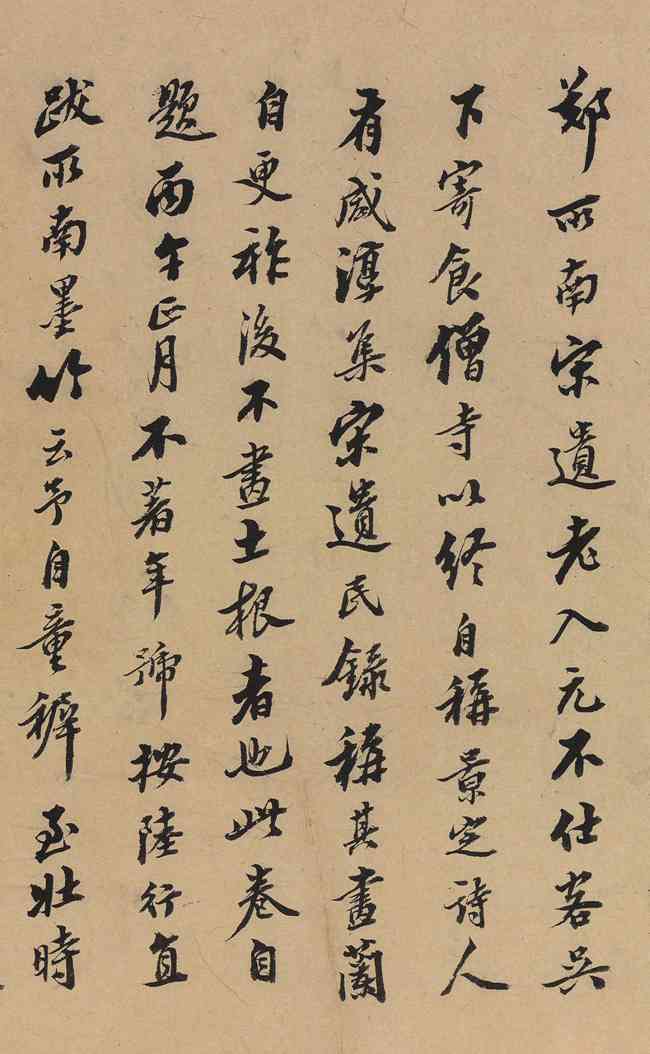 鄭所南宋遺老入元不仕客吳
下寄食僧寺以終自稱景定詩人
有咸淳集宋遺民錄稱其畫蘭
自更祚後不畫土根者也此卷自
題丙午正月不著年號按陸行直
跋所南墨竹云予自童穉至壯時